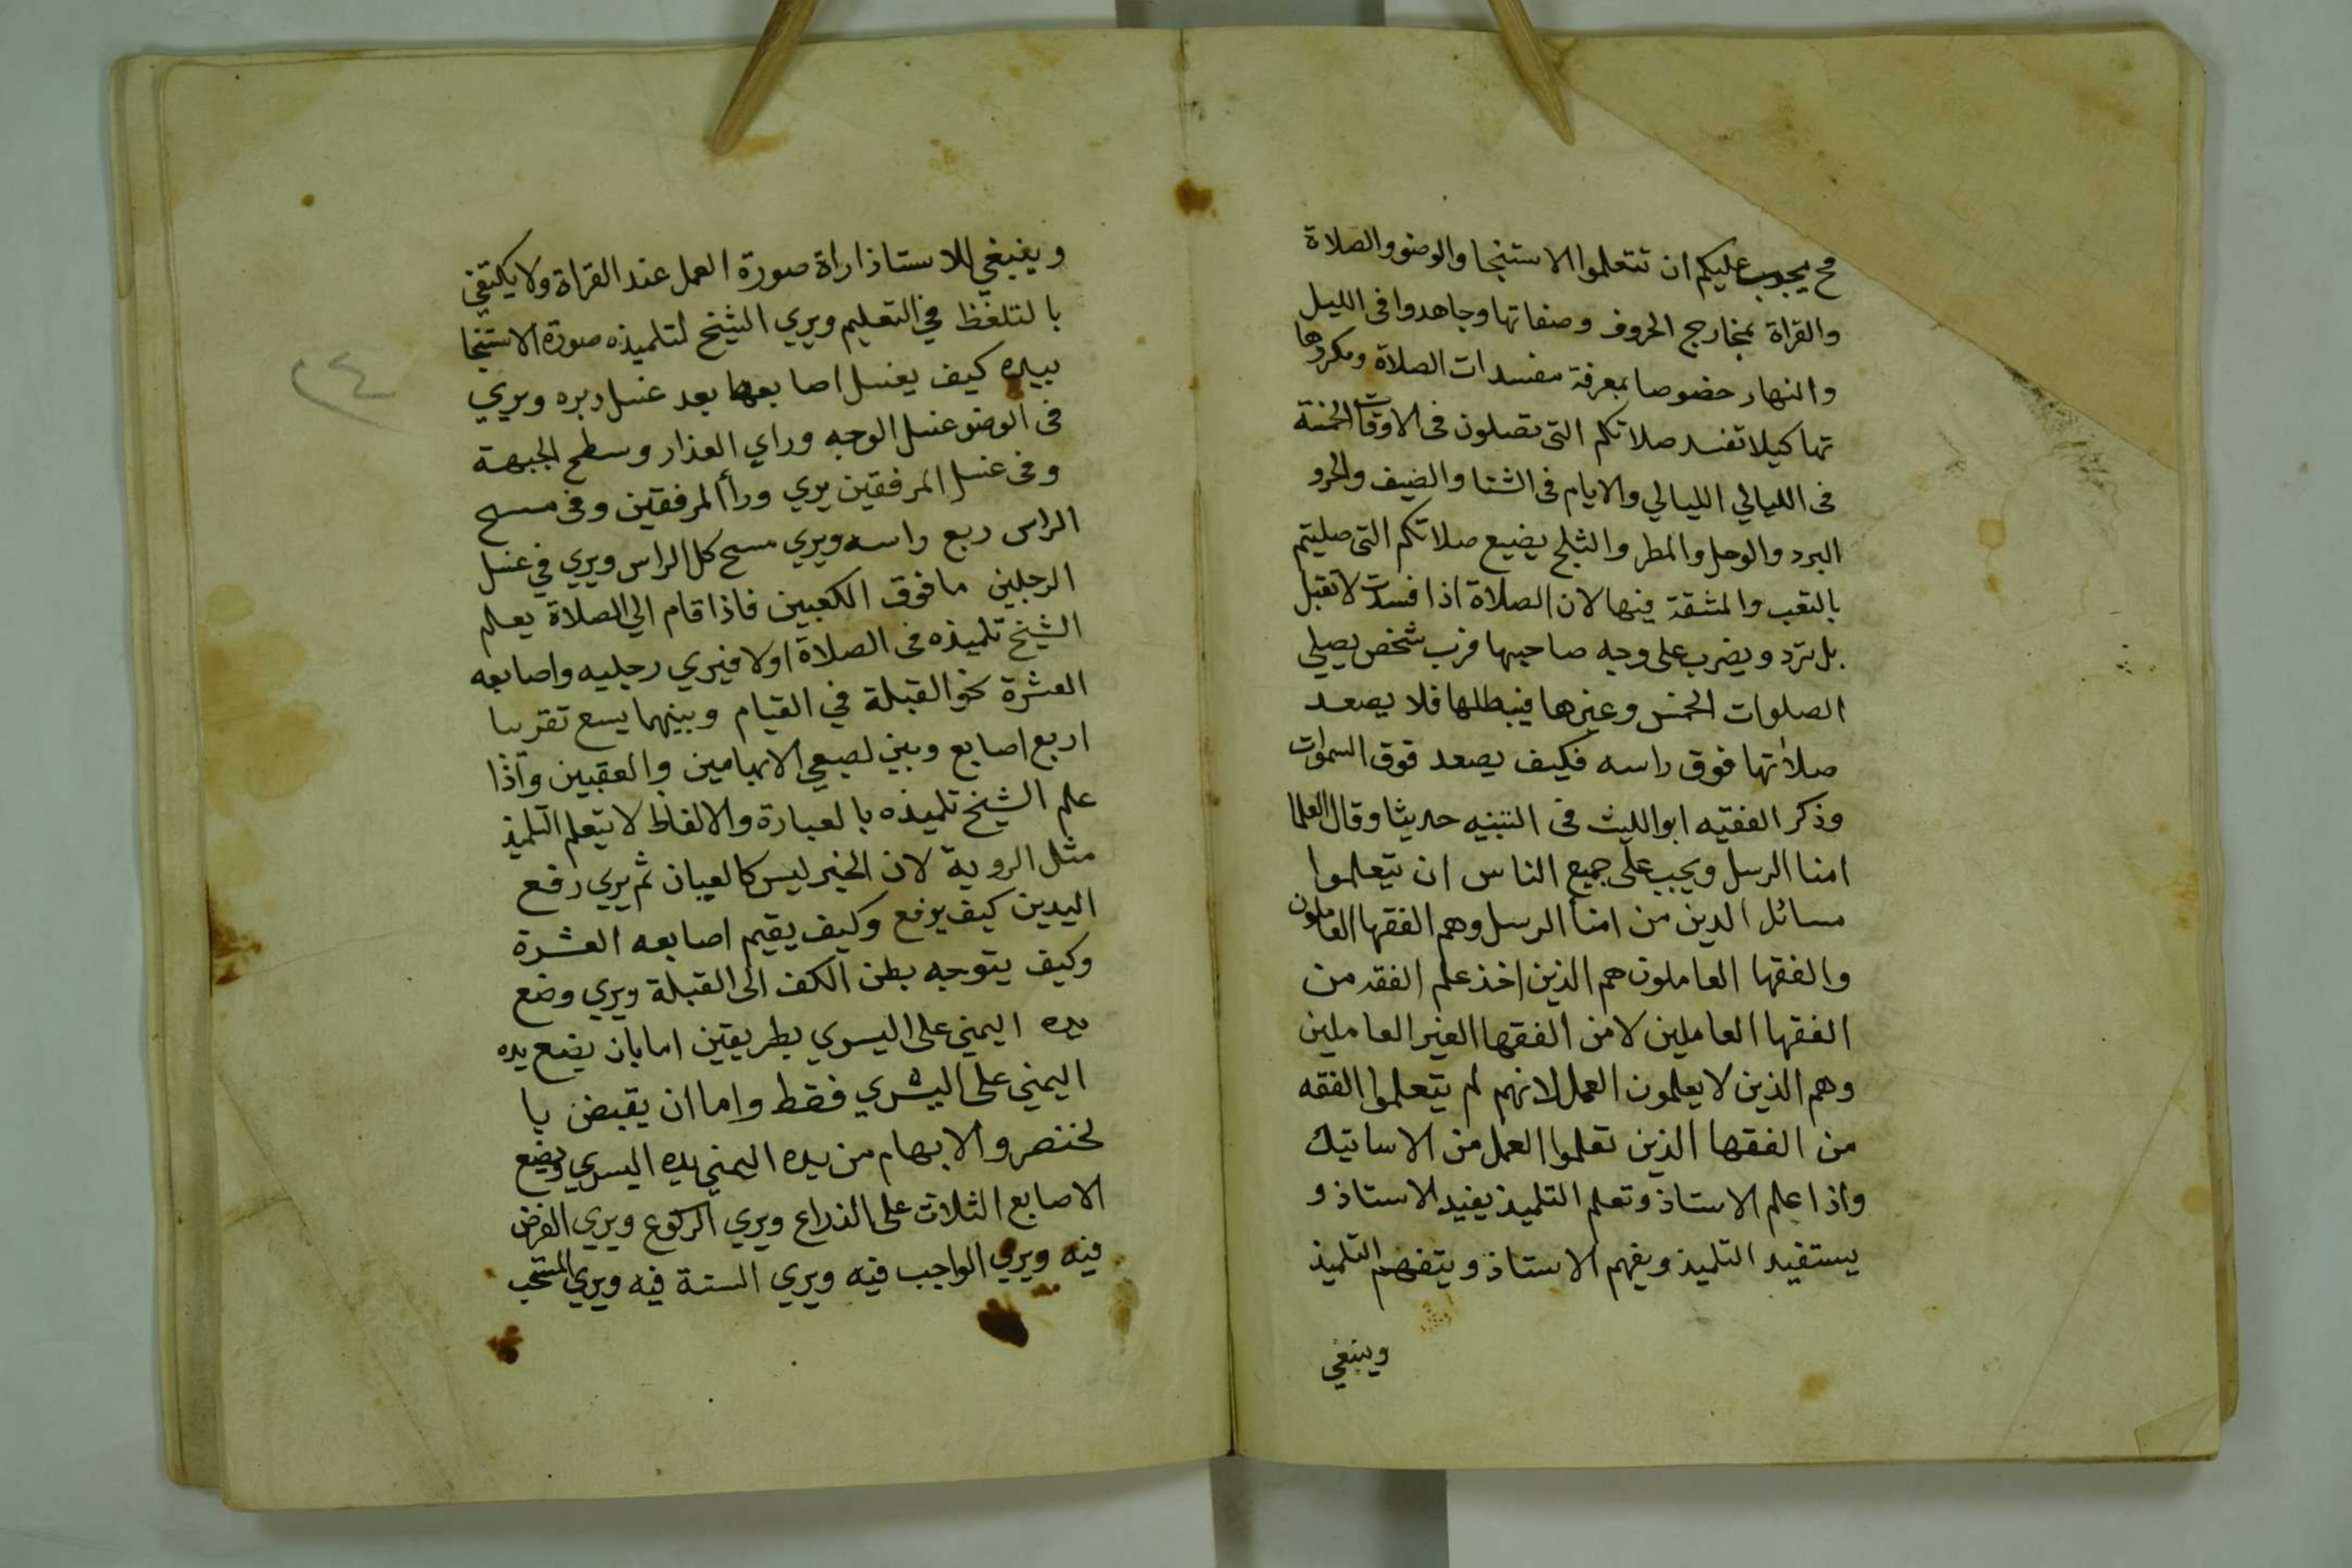 مح يجب عليكم ان تتعلموا الاستنجا والوضو والصلاة
والقراة بمخارج الحروف وصفاتها وجاهدوا فى الليل
والنهار خصوصا بمعرفة مفسدات الصلاة ومكروها
تها كيلا تفسد صلاتكم التى تصلون فى الاوقات الخمسة
فى الليالي الليالي والايام فى الشتا والصيف والحر و
البرد والوحل والمطر والثلج يضيع صلاتكم التى صليتم
بالتعب والمشقة فيها لان الصلاة اذا فسدت لا تقبل
بل ترد ويضرب على وجه صاحبها فرب شخص يصلي
الصلوات الخمس وغيرها فيبطلها فلا يصعد
صلاتها فوق راسه فكيف يصعد فوق السموات
وذكر الفقيه ابو الليث فى التنبيه حديثا وقال العلما
امنا الرسل ويجب على جميع الناس ان يتعلموا
مسائل الدين من امنا الرسل وهم الفقها العاملون
والفقها العاملون هم الذين اخذ علم الفقه من
الفقها العاملين لا من الفقها الغير العاملين
وهم الذين لا يعلمون العمل لانهم لم يتعلموا الفقه
من الفقها الذين تعلموا العمل من الاساتيك
واذا علم الاستاذ وتعلم التلميذ يفيد الاستاذ و
يستفيد التلميذ ويفهم الاستاذ ويتفهم التلميذ
وينبغي
وينبغي للاستاذ اراة صورة العمل عند القراة ولا يكتفي
بالتلفظ في التعليم ويري الشيخ لتلميذه صورة الاستنجا
بيده كيف يغسل اصابعها بعد غسل دبره ويري
فى الوضو غسل الوجه وراي العذار وسطح الجبهة
وفى غسل المرفقين يري ورأ المرفقين وفى مسح
الراس ربع راسه ويري مسح كل الراس ويري في غسل
الرجلين ما فوق الكعبين فاذا قام الي الصلاة يعلم
الشيخ تلميذه فى الصلاة اولا فيري رجليه واصابعه
العشرة نحو القبلة في القيام وبينهما يسع تقريبا
اربع اصابع وبين اصبعي الابهامين والعقبين واذا
علم الشيخ تلميذه بالعبارة والالفاظ لا يتعلم التلميذ
مثل الروية لان الخبر ليس كالعيان ثم يري رفع
اليدين كيف يرفع وكيف يقيم اصابعه العشرة
وكيف يتوجه بطن الكف الى القبلة ويري وضع
يده اليمني على اليسري بطريقين اما بان يضع يده
اليمني على اليسري فقط واما ان يقبض با
لخنصر والابهام من يده اليمني يده اليسري ويضع
الاصابع الثلاث على الذراع ويري الركوع ويري الفرض
فيه ويري الواجب فيه ويري السنة فيه ويري المستحب